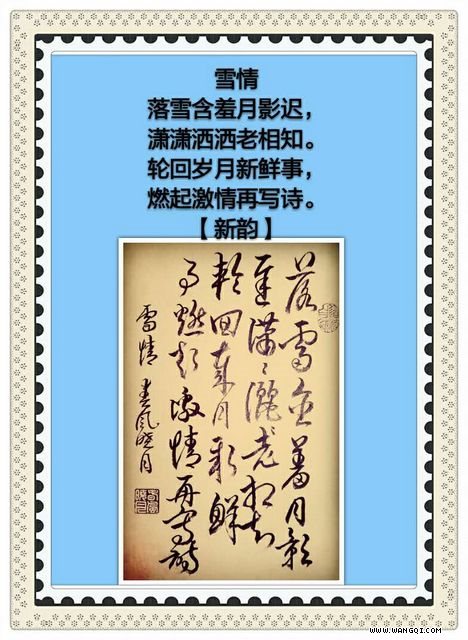 雪情
落雪含羞月影迟，
潇潇洒洒老相知。
轮回岁月新鲜事，
燃起激情再写诗。
【新韵】
落雪含羞月影
迟潇〻灑〻老相知
轮回岁月新鲜
事燃起激情再写诗
雪情 春风晓月
WWW.WANGQI.COM